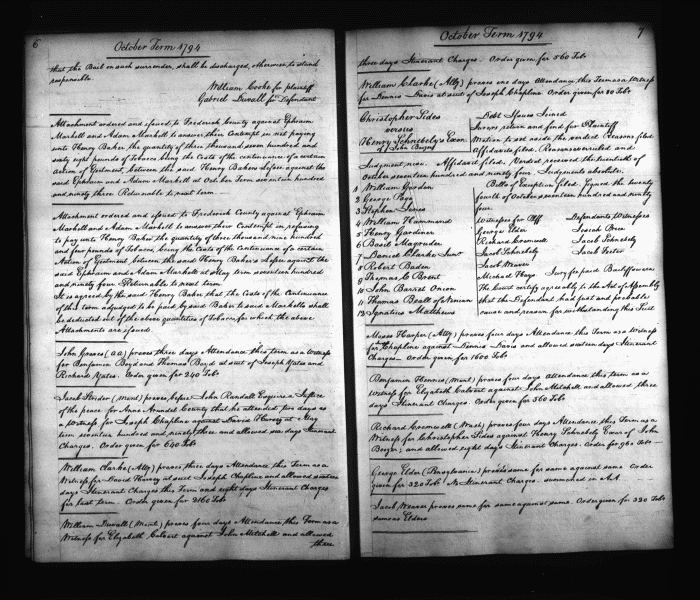 6
October Term 1794
that the Bail on such surrender, shall be discharged, otherwise to stand
responsible.
William Cooke for plaintiff
Gabriel Duvall for Defendant
Attachment ordered and issued, to Frederick County against Ephraim
Markell and Adam Markell to answer their Contempt in not paying
unto Henry Baker the quantity of three thousand seven hundred and
sixty eight pounds of Tobacco being the Costs of the continuance of a certain
Action of Ejectment, between the said Henry Bakers Lessee against the
said Ephraim and Adam Markell at October Term seventeen hundred
and ninety three Returnable to next term.
Attachment ordered and issued to Frederick County against Ephraim
Markell and Adam Markell to answer their Contempt in refusing
to pay unto Henry Baker the quantity of three thousand nine hundred
and four pounds of tobacco, being the Costs of the Continuance of a certain
Action of Ejectment between the said Henry Baker's Lessee against the
said Ephraim and Adam Markell at May term seventeen hundred
and ninety four Returnable to next term.
It is agreed by the said Henry Baker that the Costs of the Continuance
of this term adjudged to be paid by said Baker to said Markells shall
be deducted out of the above quantities of Tobacco for which the above
Attachments are issued.
John Graves (AA) proves three days Attendance this term as a Witness
for Benjamin Boyd and Thomas Boyd at suit of Joseph Yates and
Richard Yates. Order given for 240 Tobo
Jacob Strider (Mont) proves before John Randall Esquire a Justice
of the peace for Anne Arundel County that he attended two days as
a Witness for Joseph Chapline against David Harvey at May
term seventeen hundred and ninety three and allowed six days Itinerant
Charges. Order given for 640 Tobo
William Clarke (Ally) proves three days Attendance this Term as a
Witness for David Harvey at suit Joseph Chapline and allowed sixteen
days Itinerant Charges this Term and eight days Itinerant Charges
for last term Order given for 2160 Tobo
William Duvall (Mont) proves four days Attendance this Term as a
Witness for Elizabeth Calvert against John Mitchell and allowed
three
7
October Term 1794
three days Itinerant Charges. Order given for 560 Tobo
William Clarke (Ally) proves one days Attendance this Term as a Witness
for Dennis Davis at suit of Joseph Chapline Order given for 80 Tobo
Christopher Sides
versus
Henry Schnebely's Exor
of John Boyer
Debt Issues Joined
Jurors return and find for Plaintiff
Motion to set aside the verdict Reasons filed
Affidavits filed. Reasons overruled and
Judgment nisi. Affidavit filed. Verdict received the twentieth of
October seventeen hundred and ninety four Judgments absolute.
1 William Gordon
2 George Page
3 Stephen James
4 William Hammond
5 Henry Gardiner
6 Basil Magruder
7 Daniel Clarke Junr
8 Robert Baden
9 Thomas C Brent
10 John Barrel Orion
11 Thomas Beall of Ninian
12 Ignatius Matthews
Bills of Exception filed. Signed the twenty
fourth of October seventeen hundred and ninety
four
Witnesses for Plff
George Elder
Richard Cromwell
Jacob Schnebely
Jacob Weaver
Michael Hays
Defendants Witnesses
Jacob Schnebely
Jury for paid Bailiff sworn
The Court certify agreeably to the Act of Assembly
that the Defendant had just and probable
cause and reason for withstanding this Suit
Moses Harper (Ally) proves four days Attendance this Term as a Witness
for Chapline against Dennis Davis and allowed sixteen days Itinerant
Charges. Order given for 1600 Tobo
Benjamin Hennis (Mont) proves four days Attendance this term as a
Witness for Elizabeth Calvert against John Mitchell and allowed three
days Itinerant Charges. Order given for 560 Tobo
Richard Cromwell (Wash) proves four days Attendance this Term as a
Witness for Christopher Sides against Henry Schnebely Exor of John
Boyer; and allowed eight days Itinerant Charges. Order for 960 Tobo
George Elder (Pennsylvania) proves same for same against same Order
given for 320 Tobo No Itinerant Charges. summoned in AA
Jacob Weaver proves same for same against same. Order given for 320 Tobo
same as Elders